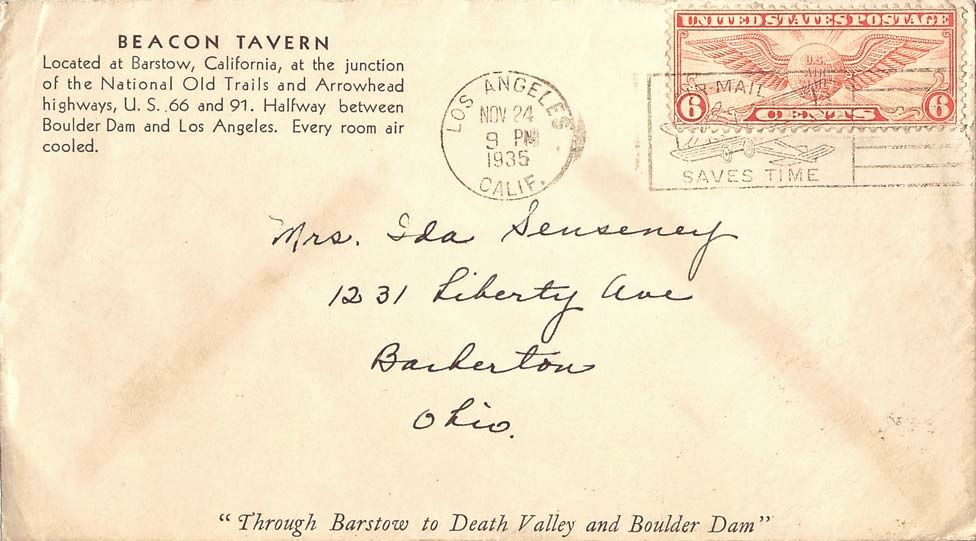 BEACON TAVERN
Located at Barstow, California, at the junction
of the National Old Trails and Arrowhead
highways, U. S. 66 and 91. Halfway between
Boulder Dam and Los Angeles. Every room air
cooled.
LOS ANGELES
NOV 24
9 PM
1935
CALIF.
UNITED STATES POSTAGE
U.S.
AIR MAIL
6 CENTS 6
SAVES TIME
Mrs. Ida Senseney
1231 Liberty Ave
Barberton
Ohio.
"Through Barstow to Death Valley and Boulder Dam"